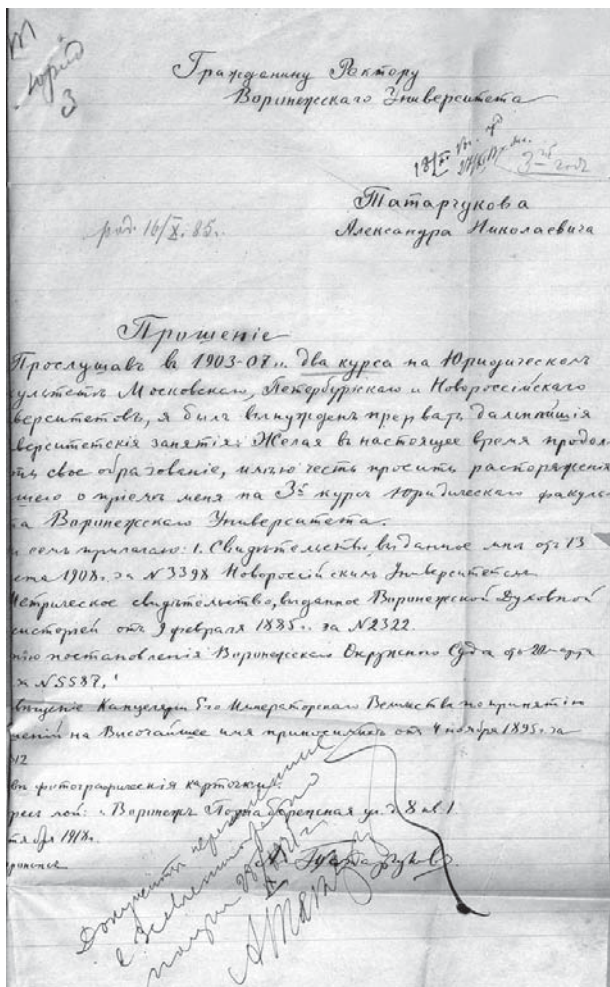 Юрид
3
Гражданину Ректору
Воронежскаго Университета
3й годъ
Татарчукова
Александра Николаевича
род. 16/X. 85.
Прошеніе
Прослушавъ въ 1903-07 г. два курса на Юридическомъ
ультетѣ Московскаго, Петербургскаго и Новороссійскаго
верситетовъ, я былъ вынужденъ прервать дальнѣйшія
верситетскія занятія. Желая въ настоящее время продол
свое образованіе, имѣю честь просить распоряженія
шего о пріемѣ меня на 3й курсъ Юридическаго факуль
та Воронежскаго Университета.
и семъ прилагаю: 1. Свидѣтельство, выданное мнѣ отъ 13
1908 г. за N 3398 Новороссійскимъ Университетомъ
Метрическое свидѣтельство, выданное Воронежской Духовной
систоріей отъ 9 февраля 1885 г. за N 2322.
постановленія Воронежскаго Окружнаго Суда
N 5587.
Канцеляріи Его Императорскаго Величества по принятію
на Высочайшее имя приносимыхъ отъ 4 ноября 1895 г. за
12
фотографическія карточки.
мой: Воронежъ ул. д. 8 кв. 1.
1918 г.
Документы